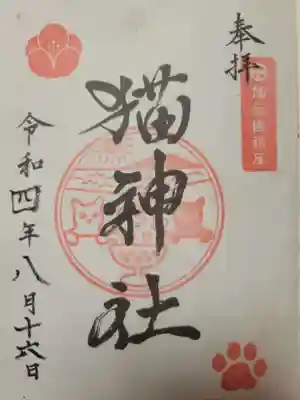 奉拝
猫神社
令和四年八月十六日